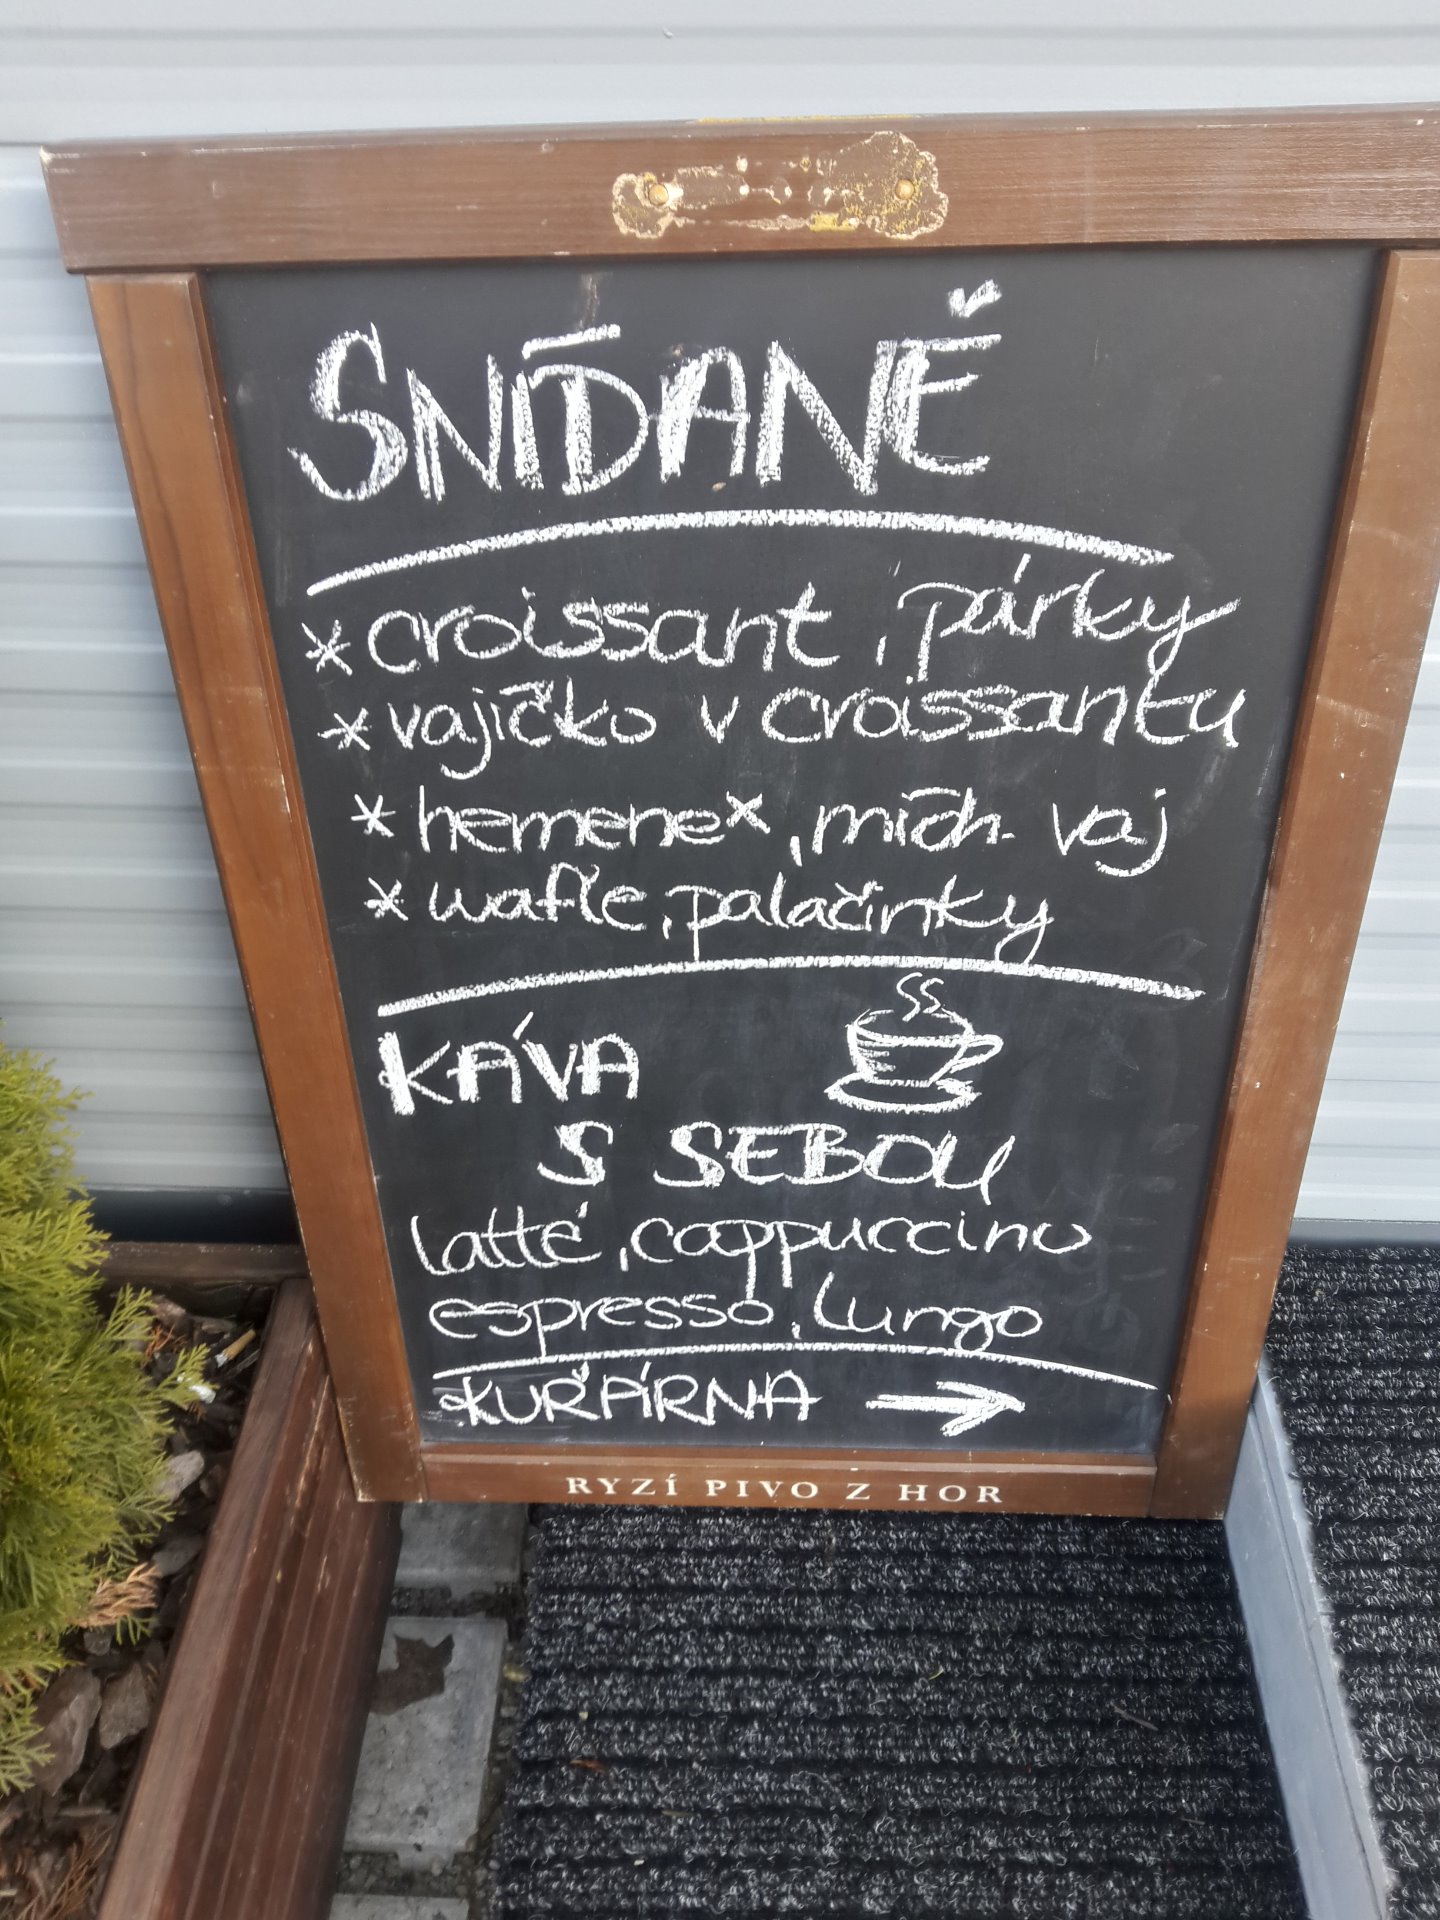 SNÍDANĚ
* croissant, párky
* vajíčko v croissantu
* hemenex, mích. vaj
* wafle, palačinky
KÁVA
S SEBOU
latté, cappuccino
espresso, lungo
KUŘÁRNA →
RYZÍ PIVO Z HOR